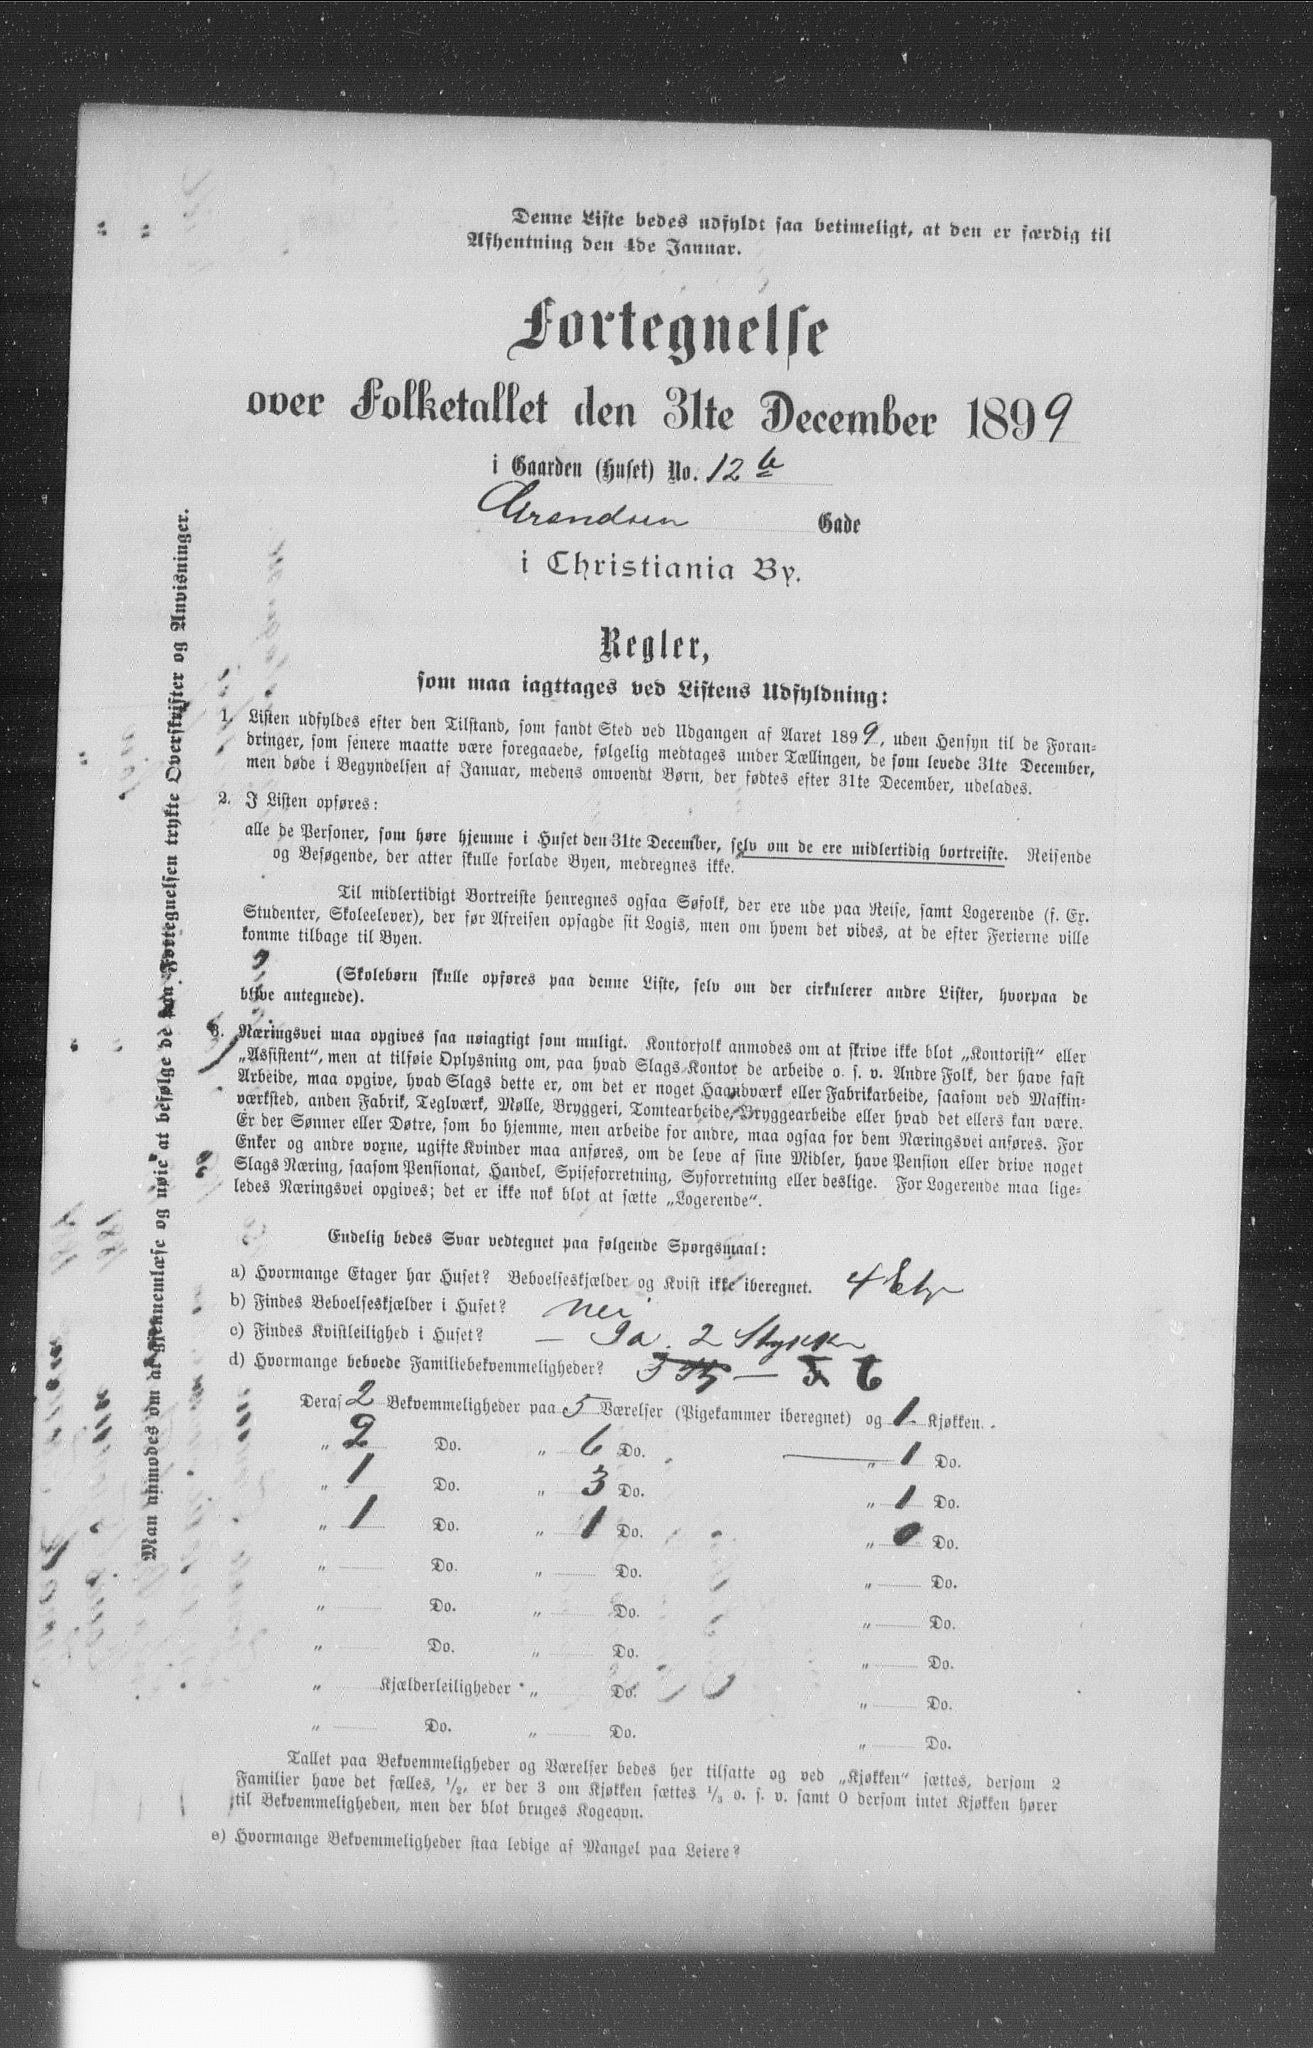 Denne Liste bedes udfyldt saa betimeligt, at den er færdig til
Afhentning den 4de Januar.
Fortegnelse
over Folketallet den 31te December 1899
i Gaarden (Huset) No. 12 b
Gade
i Christiania By.
Regler,
som maa iagttages ved Listens Udfyldning:
1. Listen udfyldes efter den Tilstand, som fandt Sted ved Udgangen af Aaret 1899, uden Hensyn til de Foran-
dringer, som senere maatte være foregaaede, følgelig medtages under Tællingen, de som levede 31te December,
men døde i Begyndelsen af Januar, medens omvendt Børn, der fødtes efter 31te December, udelades.
2. I Listen opføres:
alle de Personer, som høre hjemme i Huset den 31te December, selv om de ere midlertidig bortreiste. Reisende
og Besøgende, der atter skulle forlade Byen, medregnes ikke.
Til midlertidigt Bortreiste henregnes ogsaa Søfolk, der ere ude paa Reise, samt Logerende (f. Ex.
Studenter, Skoleelever), der før Afreisen opsagde sit Logis, men om hvem det vides, at de efter Ferierne ville
komme tilbage til Byen.
(Skolebørn skulle opføres paa denne Liste, selv om der cirkulerer andre Lister, hvorpaa de
blive antegnede).
3. Næringsvei maa opgives saa nøiagtigt som muligt. Kontorfolk anmodes om at skrive ikke blot „Kontorist“ eller
„Assistent“, men at tilføie Oplysning om, paa hvad Slags Kontor de arbeide o. s. v. Andre Folk, der have fast
Arbeide, maa opgive, hvad Slags dette er, om det er noget Haandværk eller Fabrikarbeide, saasom ved Maskin-
værksted, anden Fabrik, Teglværk, Mølle, Bryggeri, Tomtearbeide, Bryggearbeide eller hvad det ellers kan være.
Er der Sønner eller Døtre, som bo hjemme, men arbeide for andre, maa ogsaa for dem Næringsvei anføres. For
Enker og andre voxne, ugifte Kvinder maa anføres, om de leve af sine Midler, have Pension eller drive noget
Slags Næring, saasom Pensionat, Handel, Spiseforretning, Syforretning eller deslige. For Logerende maa lige-
ledes Næringsvei opgives; det er ikke nok blot at sætte „Logerende“.
Endelig bedes Svar vedtegnet paa følgende Spørgsmaal:
a) Hvormange Etager har Huset? Beboelseskjælder og Kvist ikke iberegnet. 4 Etg
b) Findes Beboelseskjælder i Huset? nei
c) Findes Kvistleilighed i Huset? — Ja. 2 Stykker
d) Hvormange beboede Familiebekvemmeligheder? 6
Deraf 2 Bekvemmeligheder paa 5 Værelser (Pigekammer iberegnet) og 1 Kjøkken.
„ 2 Do. „ 6 Do. „ 1 Do.
„ 1 Do. „ 3 Do. „ 1 Do.
„ 1 Do. „ 1 Do. „ 0 Do.
„ Do. „ Do. „ Do.
„ Do. „ Do. „ Do.
„ Do. „ Do. „ Do.
„ Kjælderleiligheder „ Do. „ Do.
„ Do. „ Do. „ Do.
Tallet paa Bekvemmeligheder og Værelser bedes her tilsatte og ved „Kjøkken“ sættes, dersom 2
Familier have det fælles, 1/2, er der 3 om Kjøkken sættes 1/3 o. s. v. samt 0 dersom intet Kjøkken hører
til Bekvemmeligheden, men der blot bruges Kogeovn.
e) Hvormange Bekvemmeligheder staa ledige af Mangel paa Leiere?
Man anmodes om at gjennemlæse og nøie at befølge de paa Fortegnelsen trykte Overskrifter og Anvisninger.